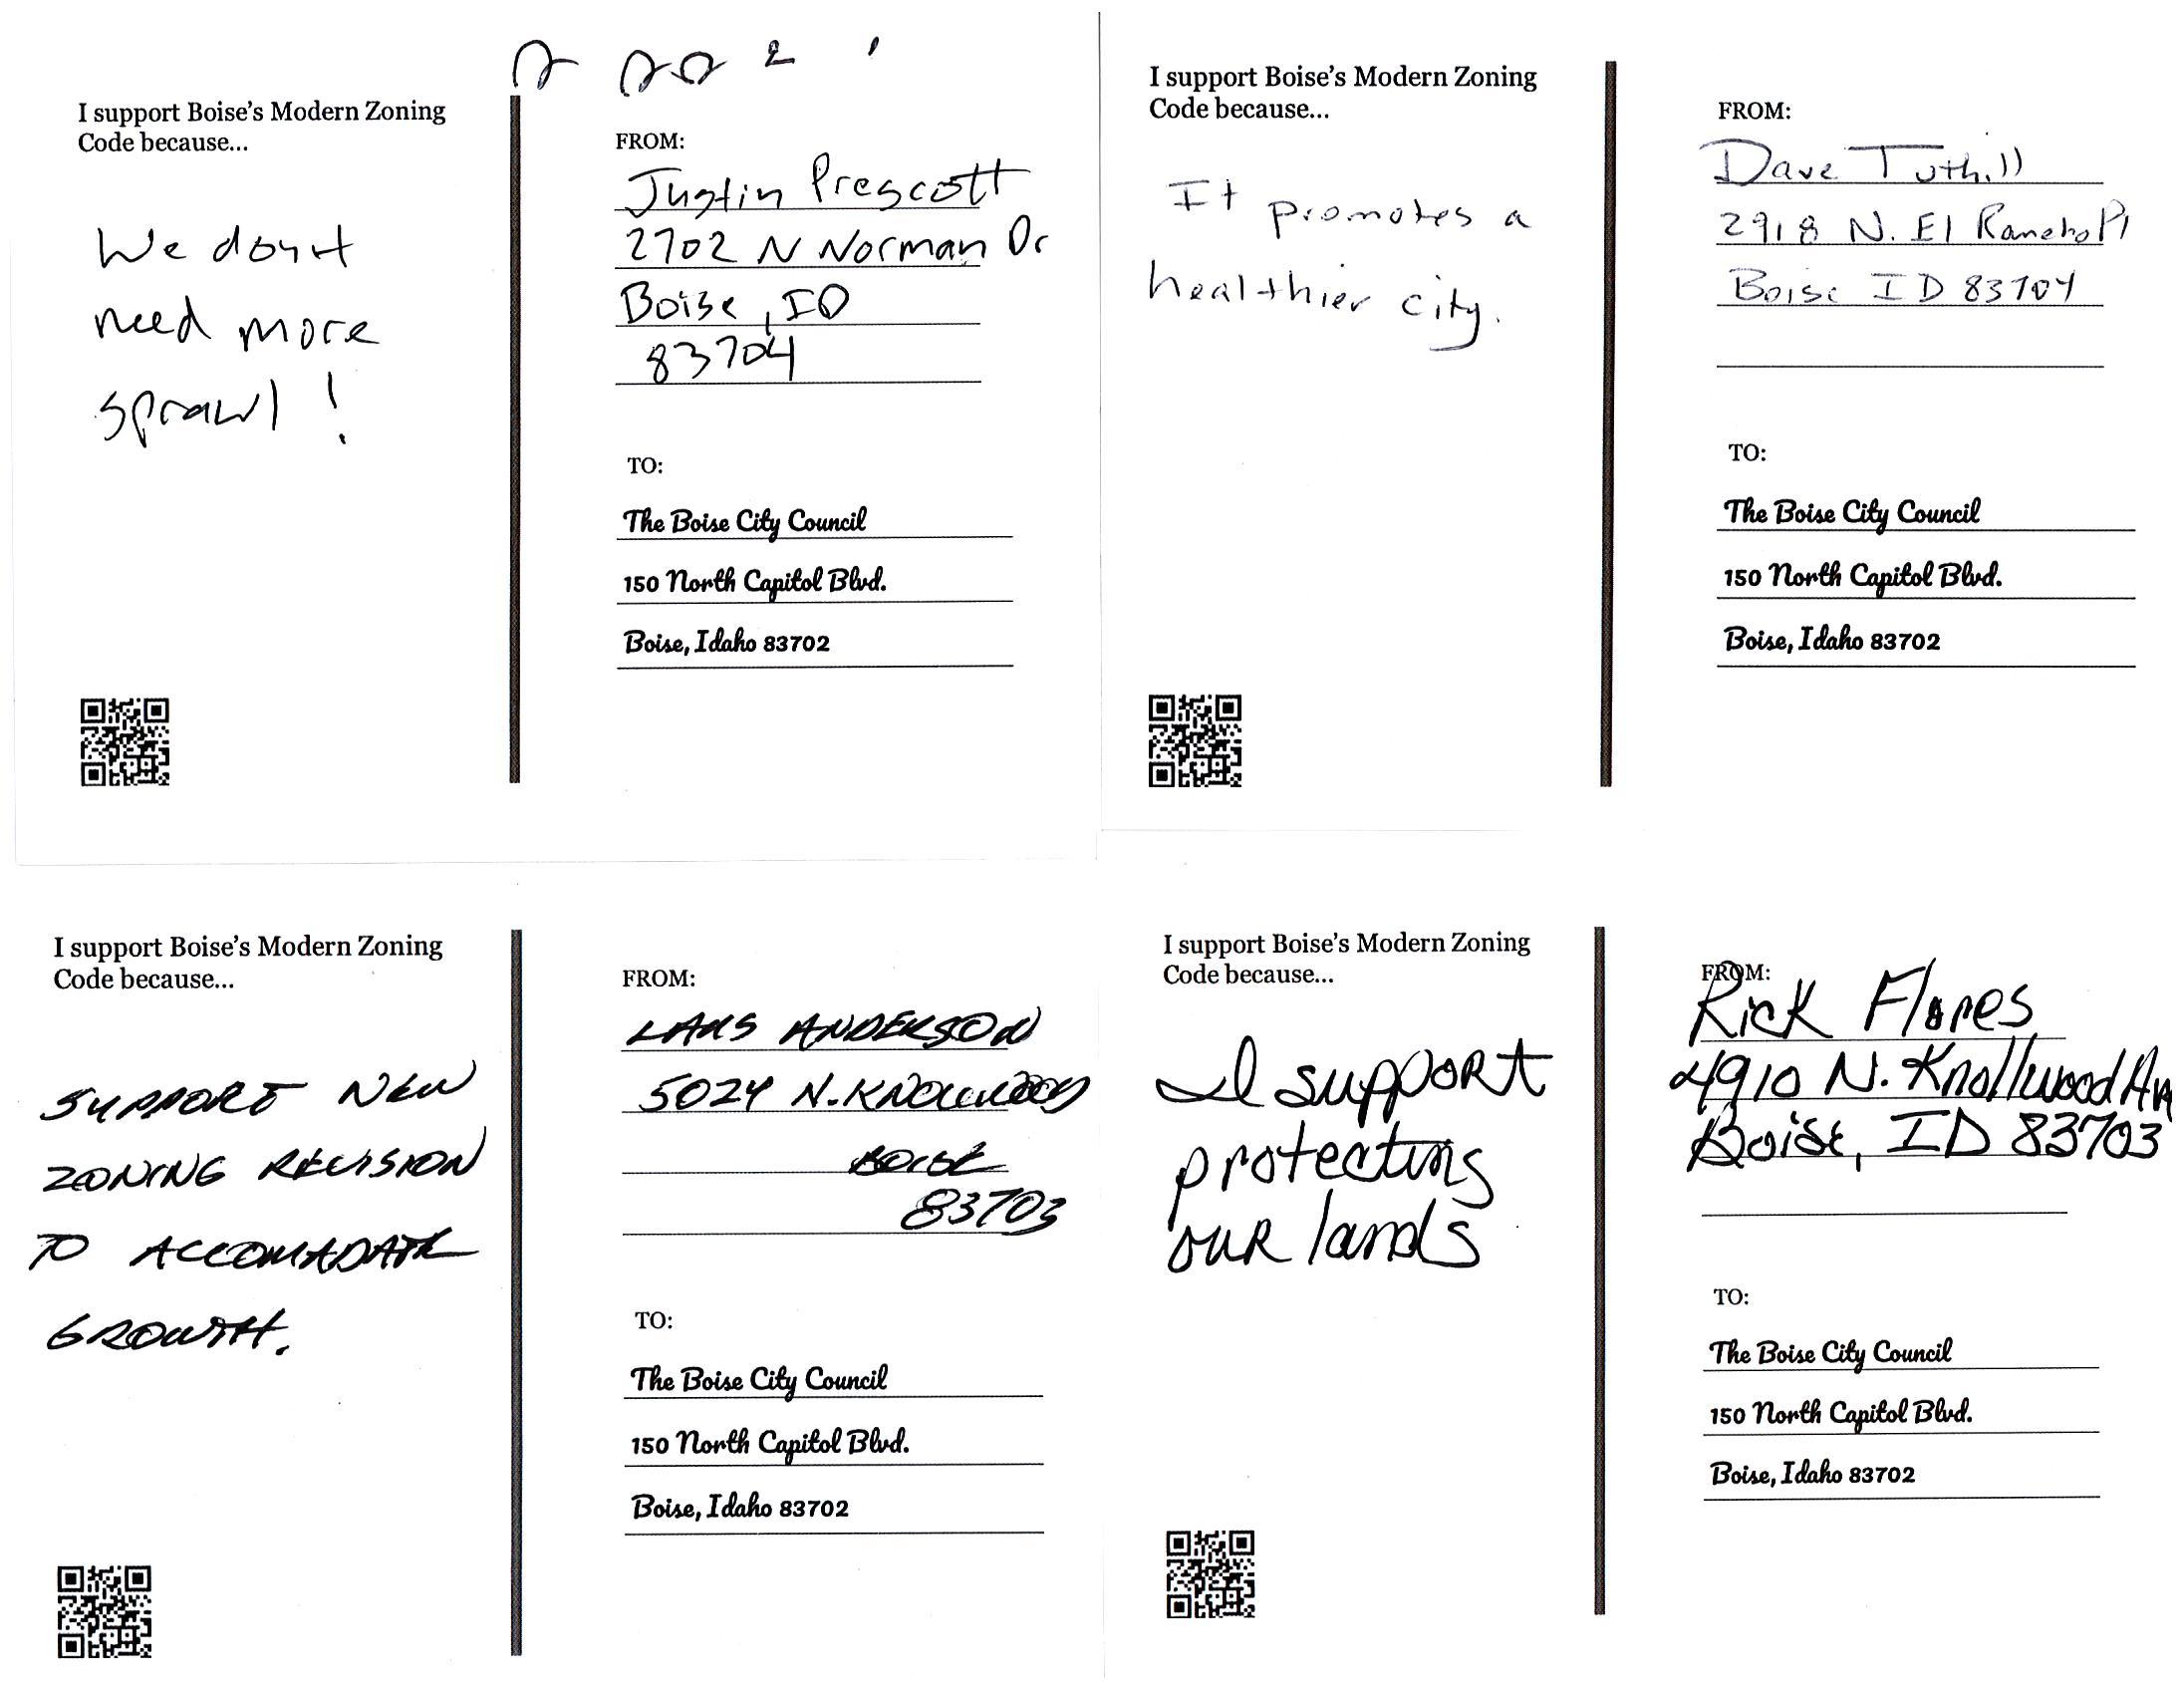 I support Boise's Modern Zoning
Code because...
We don't
need more
sprawl!
FROM:
Justin Prescott
2702 N Norman Dr
Boise, ID
83704
TO:
The Boise City Council
150 North Capitol Blvd.
Boise, Idaho 83702
I support Boise's Modern Zoning
Code because...
It promotes a
healthier city.
FROM:
Dave Tuthill
2918 N. El Rancho Pl
Boise ID 83704
TO:
The Boise City Council
150 North Capitol Blvd.
Boise, Idaho 83702
I support Boise's Modern Zoning
Code because...
SUPPORT NEW
ZONING REVISION
TO ACCOMADATE
GROWTH.
FROM:
LARS ANDERSON
5024 N. KNOLLWOOD
BOISE
83703
TO:
The Boise City Council
150 North Capitol Blvd.
Boise, Idaho 83702
I support Boise's Modern Zoning
Code because...
I support
protecting
our lands
FROM:
Rick Flores
4910 N. Knollwood Av
Boise, ID 83703
TO:
The Boise City Council
150 North Capitol Blvd.
Boise, Idaho 83702